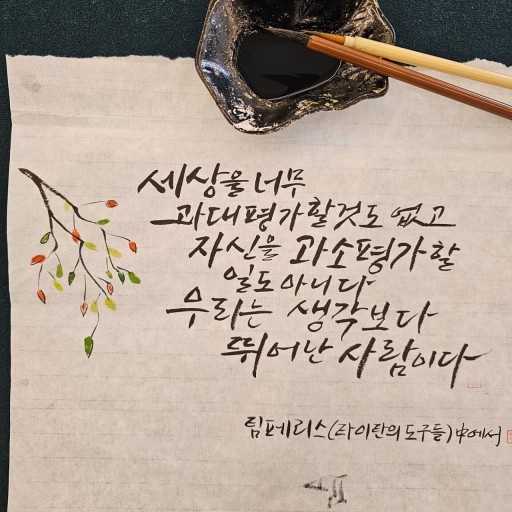 세상을 너무
과대평가할것도 없고
자신을 과소평가할
일도 아니다
우리는 생각보다
뛰어난 사람이다
팀페리스(타이탄의 도구들)中에서